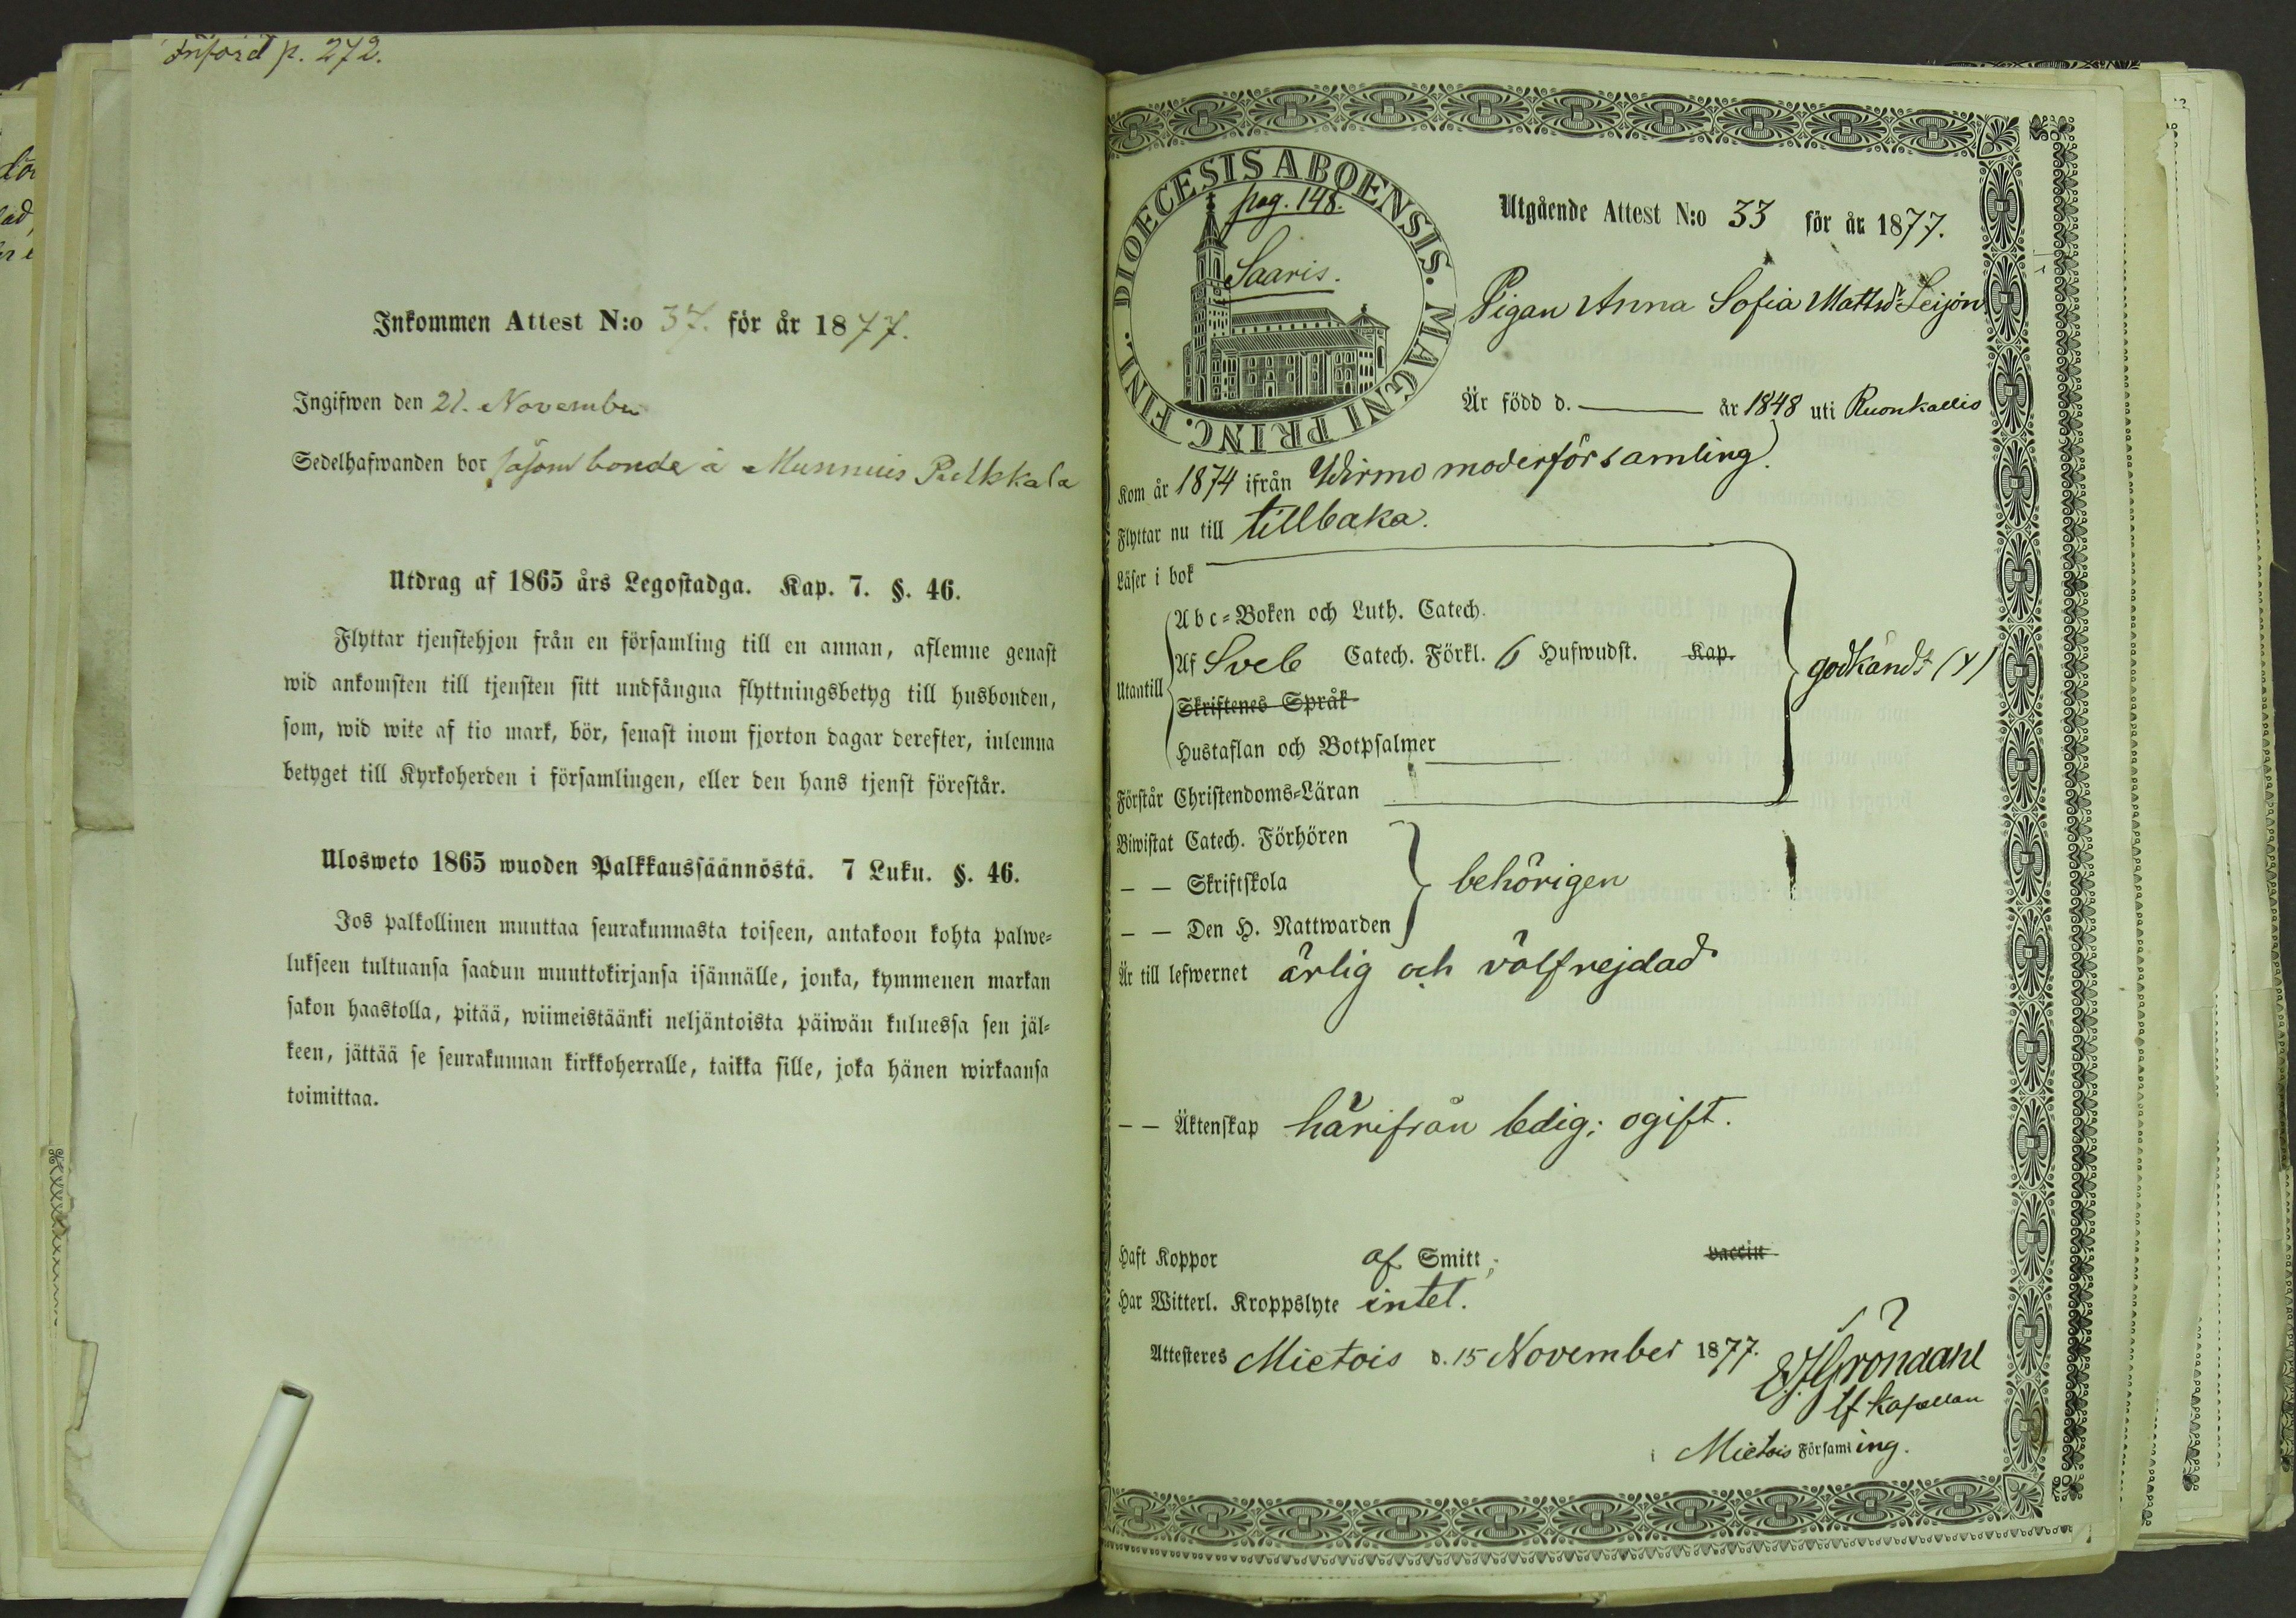 Införd p. 272.
Inkommen Attest N:o 37. för år 1877.
Ingifwen den 21. November
Sedelhafwanden bor såsom bonde å Munnuis Pulkkala
Utdrag af 1865 års Legostadga. Kap. 7. §. 46.
Flyttar tjenstehjon från en församling till en annan, aflemne genast
wid ankomsten till tjensten sitt undfångna flyttningsbetyg till husbonden,
som, wid wite af tio mark, bör, senast inom fjorton dagar derefter, inlemna
betyget till Kyrkoherden i församlingen, eller den hans tjenst förestår.
Ulosweto 1865 wuoden Palkkaussäännöstä. 7 Luku. §. 46.
Jos palkollinen muuttaa seurakunnasta toiseen, antakoon kohta palwe-
lukseen tultuansa saadun muuttokirjansa isännälle, jonka, kymmenen markan
sakon haastolla, pitää, wiimeistäänki neljäntoista päiwän kuluessa sen jäl-
keen, jättää se seurakunnan kirkkoherralle, taikka sille, joka hänen wirkaansa
toimittaa.
DIOECESIS ABOENSIS. MAGNI PRINC. FINL.
pag. 148.
Saaris.
Utgående Attest N:o 33 för år 1877.
Pigan Anna Sofia Mattsdr Leijon
Är född d. år 1848 uti Ruonkallio
Kom år 1874 ifrån Wirmo moderförsamling
Flyttar nu till tillbaka.
Läser i bok
Utantill
Abc-Boken och Luth. Catech.
Af Sveb Catech. Förkl. 6 Hufwudst. Kap.
Skriftenes Språk
Hustaflan och Botpsalmer
godkändt (y)
Förstår Christendoms-Läran
Biwistat Catech. Förhören
— — Skriftskola
behörigen
— — Den H. Nattwarden
Är till lefwernet ärlig och välfrejdad
— — Äktenskap härifrån ledig; ogift.
Haft Koppor af Smitt; vaccin
Har Witterl. Kroppslyte intet.
Attesteres Mietois d. 15 November 1877.
Gröndahl
tf kapellan
i Mietois Församling.